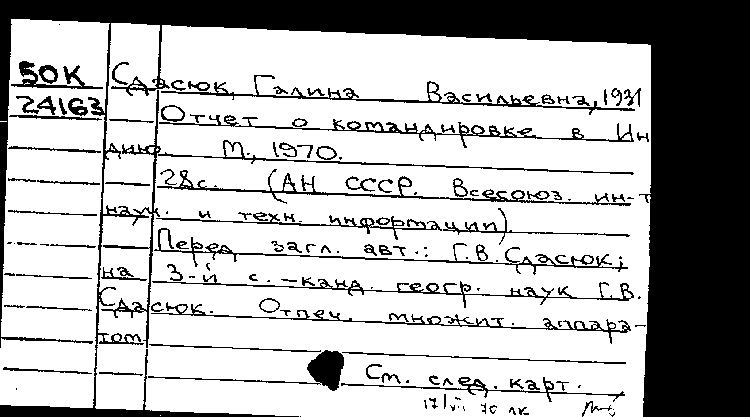 50К Сдасюк, Галина Васильевна, 1931
24163 Отчет о командировке в Ин
дию. М., 1970.
28с. (АН СССР. Всесоюз. ин-т
науч. и техн. информации).
Перед загл. авт.: Г.В. Сдасюк;
на 3-й с. - канд. геогр. наук Г.В.
Сдасюк. Отпеч. множит. аппара-
том
См. след. карт.
17/VII 70 лк